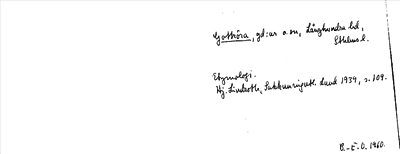 Gottröra, gd:ar o. sn, Långhundra hd,
Sthlms l.
Etymologi.
Hj. Lindroth, Lund 1934, s. 109.
B.-E. O. 1960.